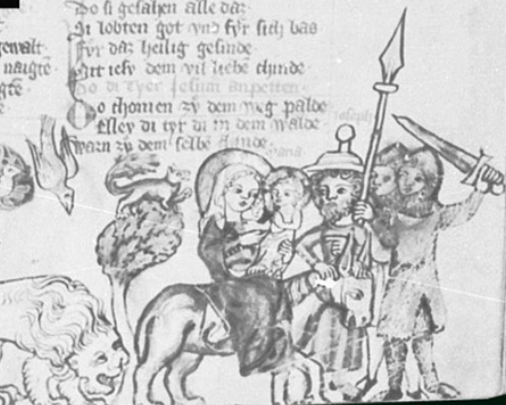 Do si gesahen alle daz
Si lobten got vnd fvr sich bas
Fvr daz heilig gesinde
Mit iesv dem vil liebē chinde
gewalt
naigtē
Do di Tyer Jesum anpetten
Do chomen zv dem weg palde
Elley di tyr di in dem walde
Warn zv dem selbē chinde
Joseph
Maria